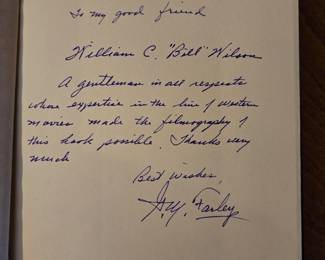 To my good friend
William C. "Bill" Wilson
A gentleman in all respects
whose expertise in the line of western
movies made the filmography of
this book possible. Thanks very
much
Best Wishes,
G.M. Farley